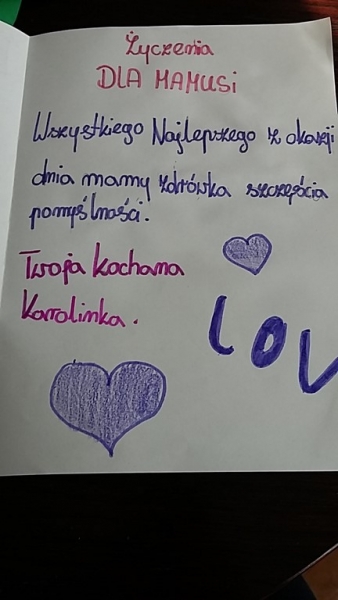 Życzenia
DLA MAMUSI
Wszystkiego Najlepszego z okazji
dnia mamy zdrówka szczęścia
pomyślności.
Twoja kochana
Karolinka.
LOV